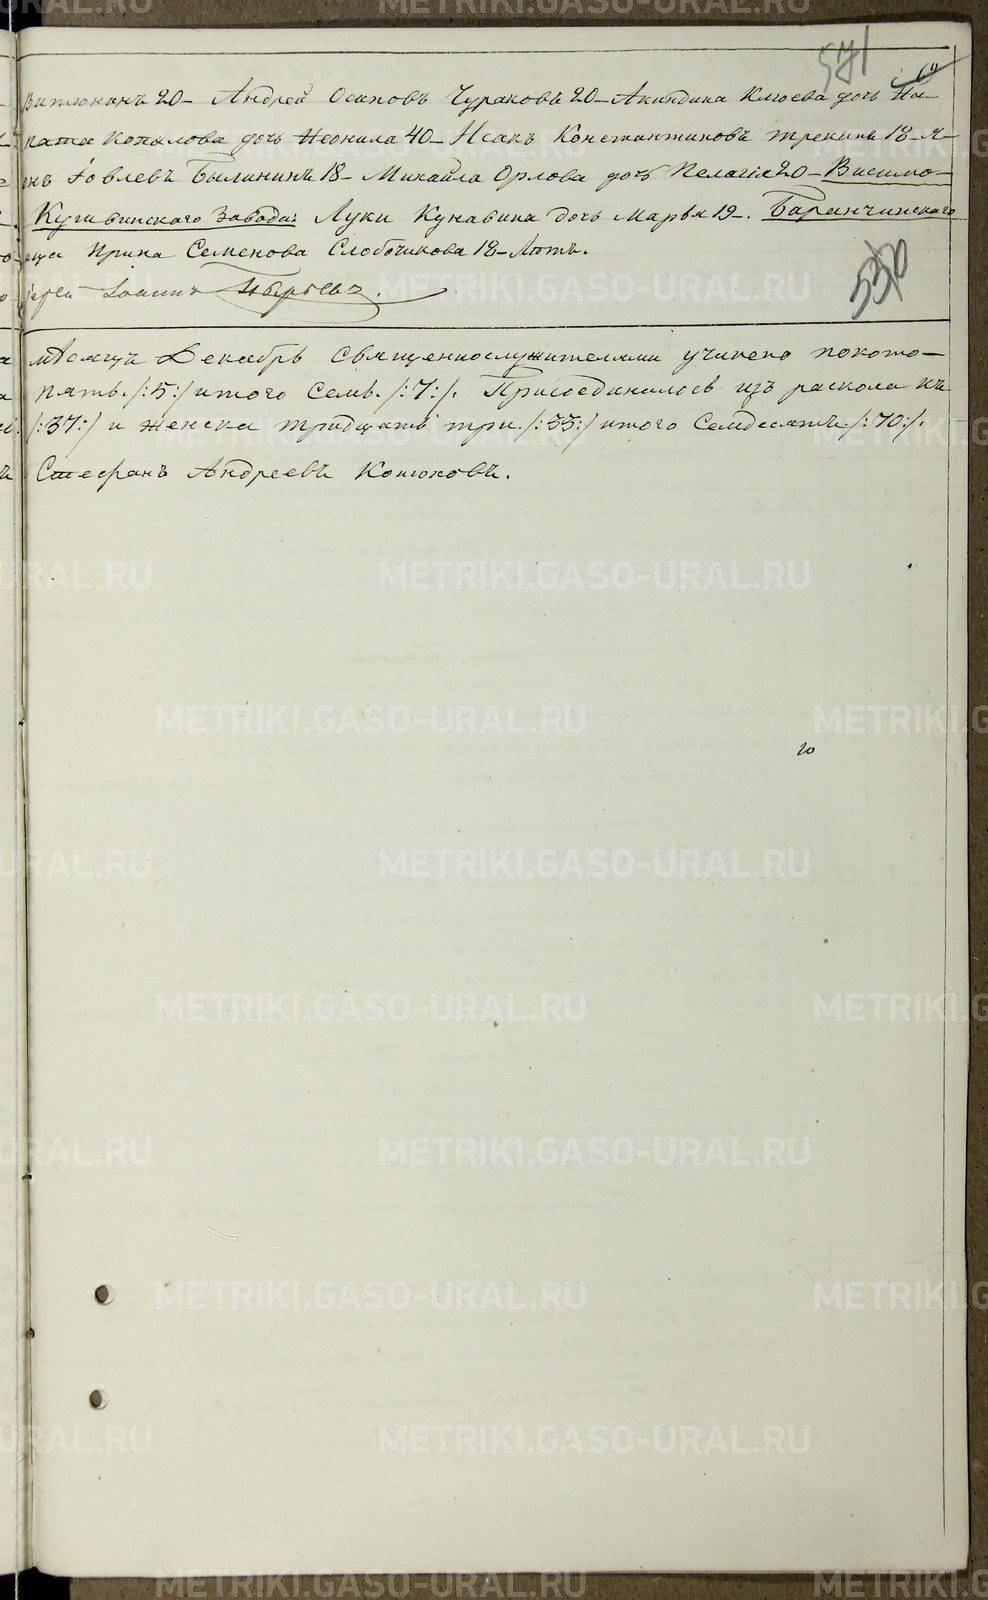 571
Витюнинъ 20 – Андрей Осиповъ Чураковъ 20 – Акиндина Клюева дочь
пата Копылова дочь Неонила 40 – Исакъ Константиновъ 18 –
Быличинъ 18 – Михайла Орлова дочь Пелагія 20 – Висимо-
Кушвинскаго Завода: Луки Кунавина дочь Марѳа 19 –. Баранчинскаго
Ирина Семенова Слободчикова 18 – Лѣтъ.
Іерей Іоаннъ
530
мѣсяцъ Декабрь священнослужителями учинено покото-
пять /:5:/ итого Семь. /:7:/. Присоединилось изъ раскола къ
/:37:/ и женска тридцать три. /:33:/ итого Семдесятъ. /:70:/.
Стефанъ Андреевъ Конюховъ.
METRIKI.GASO-URAL.RU